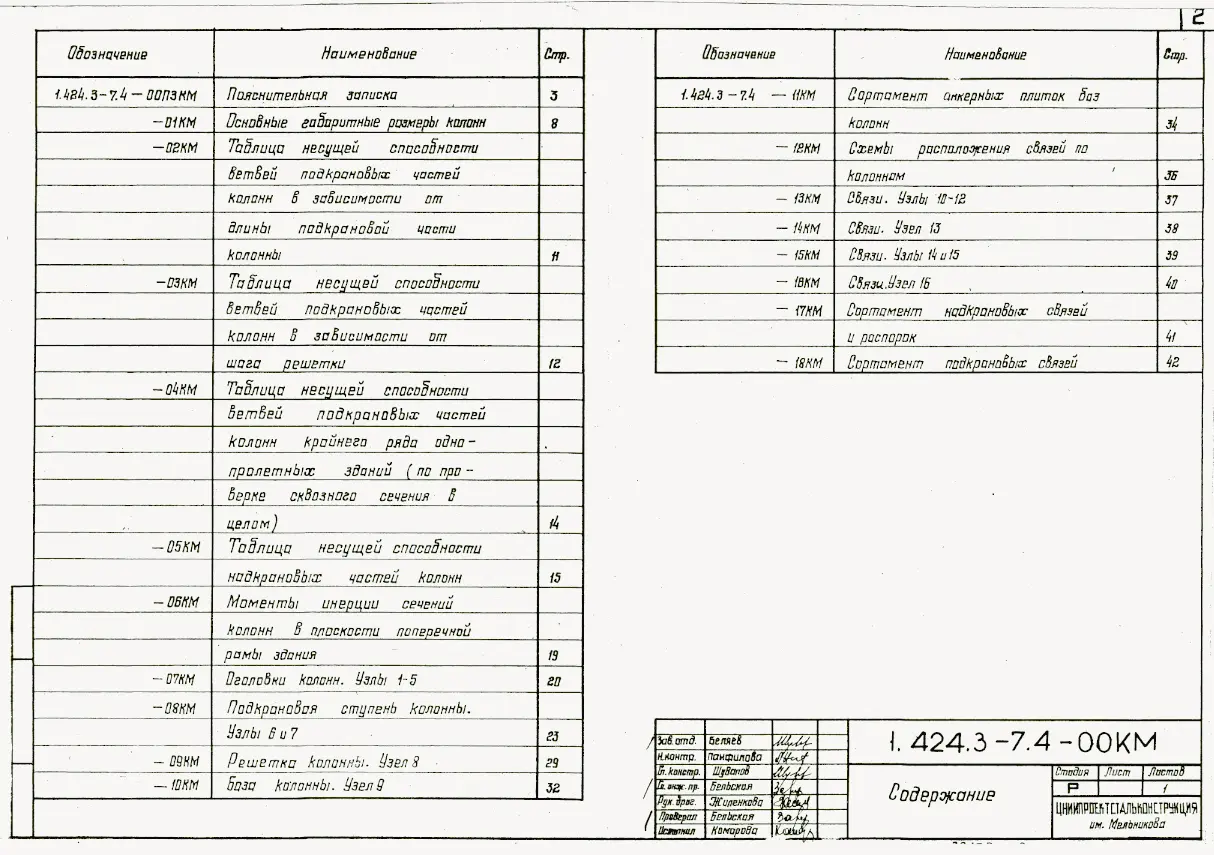 2
Обозначение Наименование Стр.
1.424.3-7.4-00ПЗКМ Пояснительная записка 3
-01КМ Основные габаритные размеры колонн 8
-02КМ Таблица несущей способности
ветвей подкрановых частей
колонн в зависимости от
длины подкрановой части
колонны 11
-03КМ Таблица несущей способности
ветвей подкрановых частей
колонн в зависимости от
шага решетки 12
-04КМ Таблица несущей способности
ветвей подкрановых частей
колонн крайнего ряда одно-
пролетных зданий (по про-
верке сквозного сечения в
целом) 14
-05КМ Таблица несущей способности
надкрановых частей колонн 15
-06КМ Моменты инерции сечений
колонн в плоскости поперечной
рамы здания 19
-07КМ Оголовки колонн. Узлы 1-5 20
-08КМ Подкрановая ступень колонны.
Узлы 6 и 7 23
-09КМ Решетка колонны. Узел 8 29
-10КМ База колонны. Узел 9 32
Обозначение Наименование Стр.
1.424.3-7.4 -11КМ Сортамент анкерных плиток баз
колонн 34
-12КМ Схемы расположения связей по
колоннам 36
-13КМ Связи. Узлы 10-12 37
-14КМ Связи. Узел 13 38
-15КМ Связи. Узлы 14 и 15 39
-16КМ Связи. Узел 16 40
-17КМ Сортамент надкрановых связей
и распорок 41
-18КМ Сортамент подкрановых связей 42
Зав. отд. Беляев
Н.контр. Панфилова
Гл. констр. Шувалов
Гл. инж. пр. Бельская
Рук. бриг. Жиленкова
Проверил Бельская
Исполнил Комарова
1.424.3-7.4-00КМ
Содержание
Стадия Лист Листов
Р 1
ЦНИИПРОЕКТСТАЛЬКОНСТРУКЦИЯ
им. Мельникова